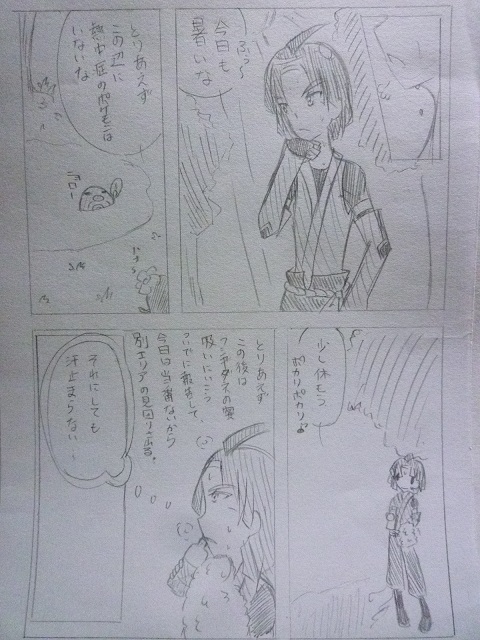 ふぅ〜
今日も
暑いな
とりあえず
この辺に
熱中症のポケモンは
いないな
ニョロー
少し休もう
ポカリポカリっと
とりあえず
この後は
フシギダネの実
吸いにいこう
ついでに報告して、
今日は当番ないから
別エリアの見回りするか。
それにしても
汗止まらない…